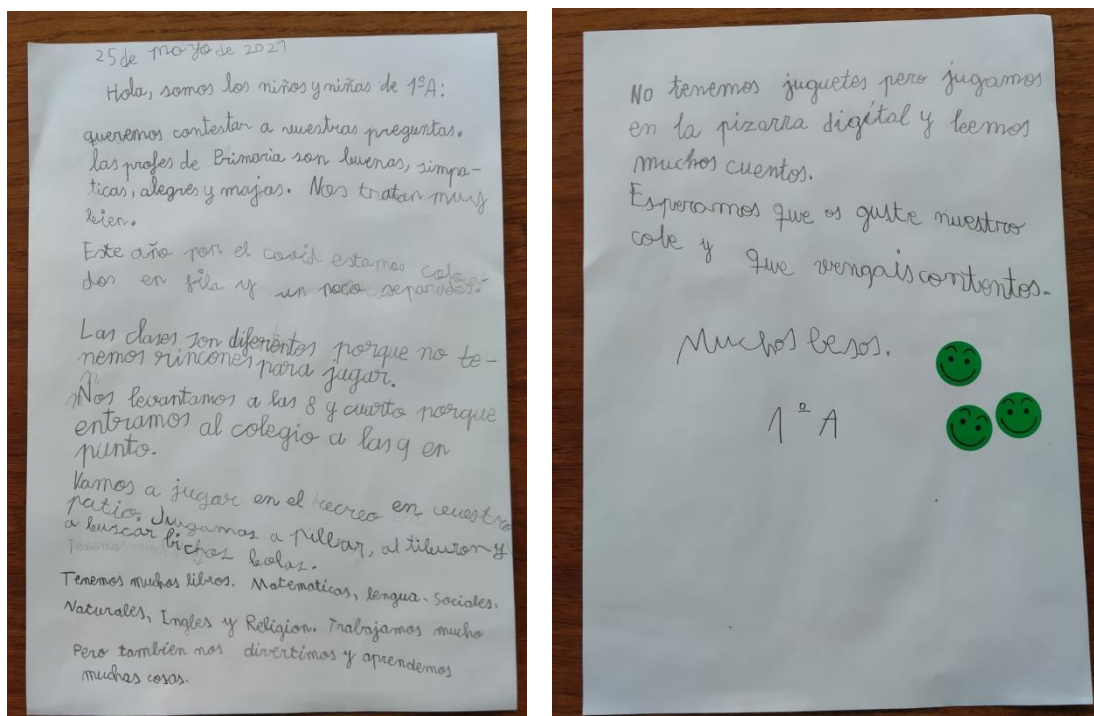 25 de mayo de 2021
Hola, somos los niños y niñas de 1ºA:
queremos contestar a vuestras preguntas.
las profes de Primaria son buenas, simpa-
ticas, alegres y majas. Nos tratan muy
bien.
Este año por el covid estamos coloca-
dos en fila y un poco separados.
Las clases son diferentes porque no te-
nemos rincones para jugar.
Nos levantamos a las 8 y cuarto porque
entramos al colegio a las 9 en
punto.
Vamos a jugar en el recreo en vuestro
patio. Jugamos a pillar, al tiburon y
a buscar bichos bolas.
Tenemos muchos libros. Matematicas, lengua. Sociales.
Naturales, Ingles y Religion. Trabajamos mucho
Pero tambien nos divertimos y aprendemos
muchas cosas.
No tenemos juguetes pero jugamos
en la pizarra digítal y leemos
muchos cuentos.
Esperamos que os guste nuestro
cole y que vengais contentos.
Muchos besos.
1º A